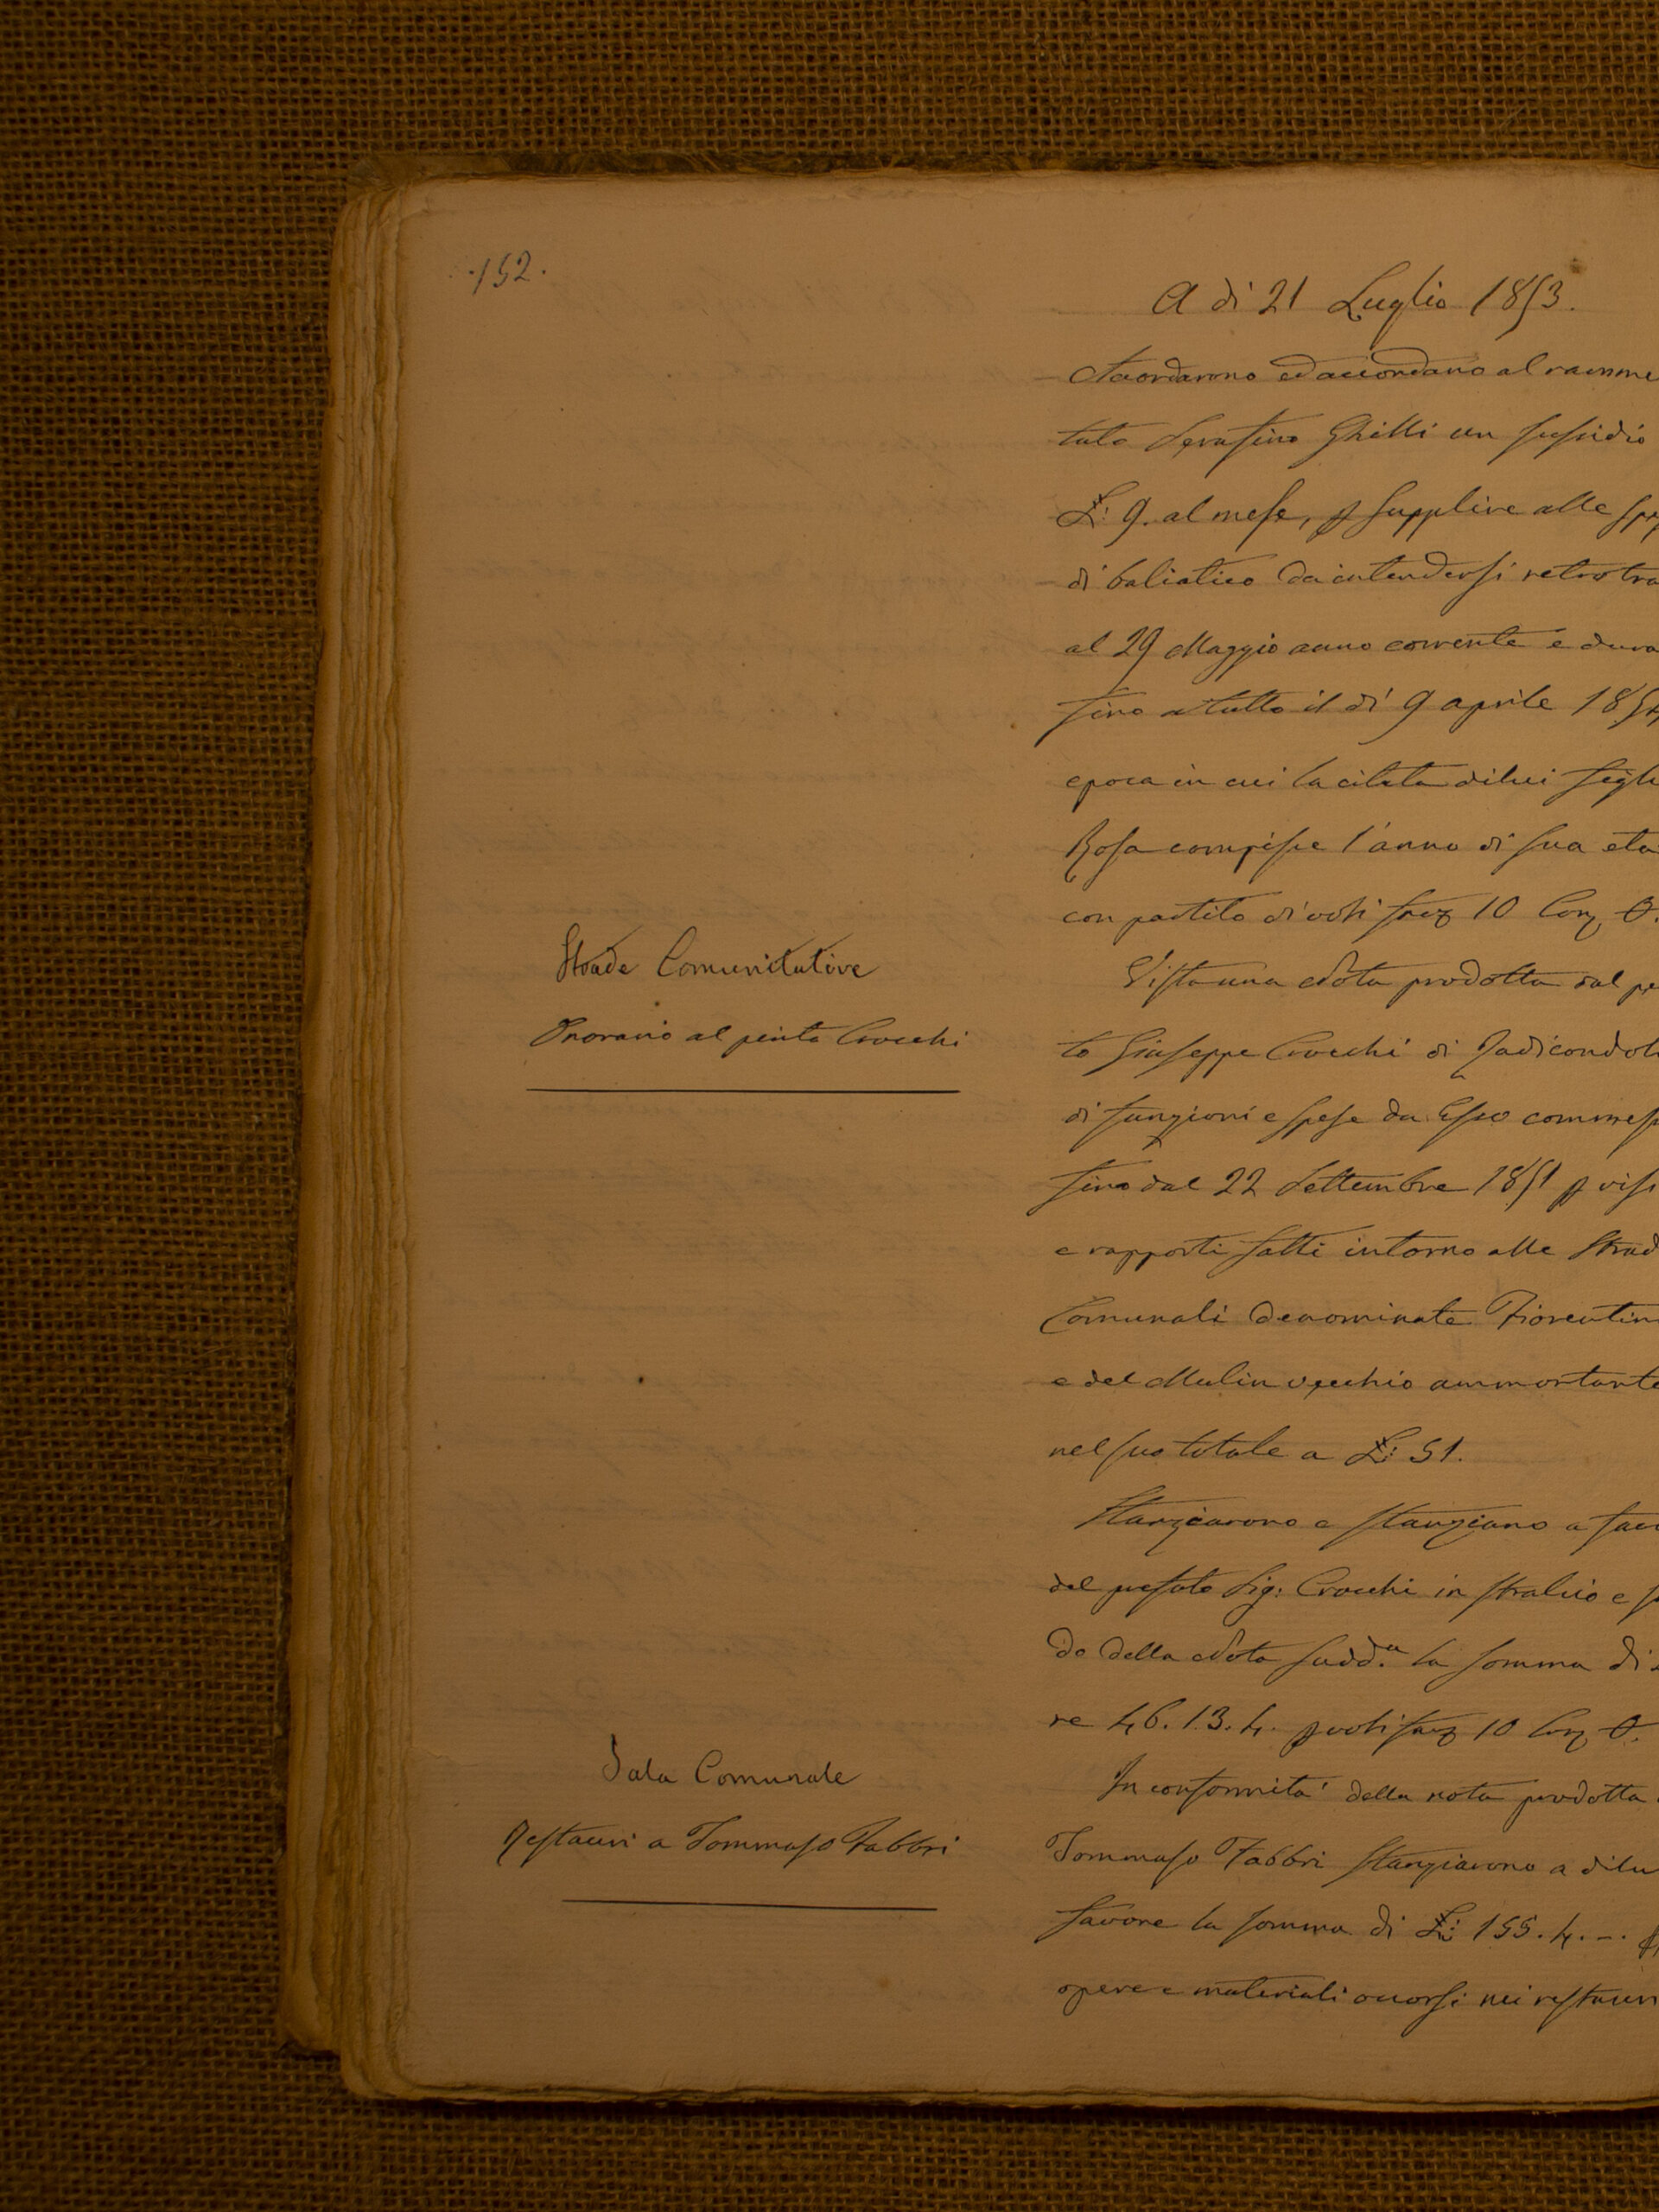 152.
A di 21 Luglio 1853.
Accordarono ed accordano al ramme
tato Serafino Ghilli un sussidio
£: 9. al mese, p supplire alle spe
di baliatico da intendersi retrotra
al 29 Maggio anno corrente e dura
fino a tutto il di 9 aprile 1854
epoca in cui la citata di lui figli
Rosa compisce l'anno di sua eta
con partito di voti favz 10 Conz 0.
Strade Comunitative
Onorario al perito Crocchi
Vista una Nota prodotta dal pe
to Giuseppe Crocchi di Radicondoli
di funzioni e spese da Esso commess
fino dal 22 Settembre 1851 p visi
e rapporti fatti intorno alle Strad
Comunali denominate Fiorentin
e del Mulin vecchio ammontante
nel suo totale a £: 51.
Stanziarono e stanziano a favo
del prefato Sig: Crocchi in stralcio e s
do della Nota sudd.a la somma di
re 46. 13. 4. p voti favz 10 Conz 0.
Sala Comunale
Restauri a Tommaso Fabbri
In conformità della nota prodotta
Tommaso Fabbri stanziarono a di lu
favore la somma di £: 155. 4. -.
opere e materiali occorsi nei restauri